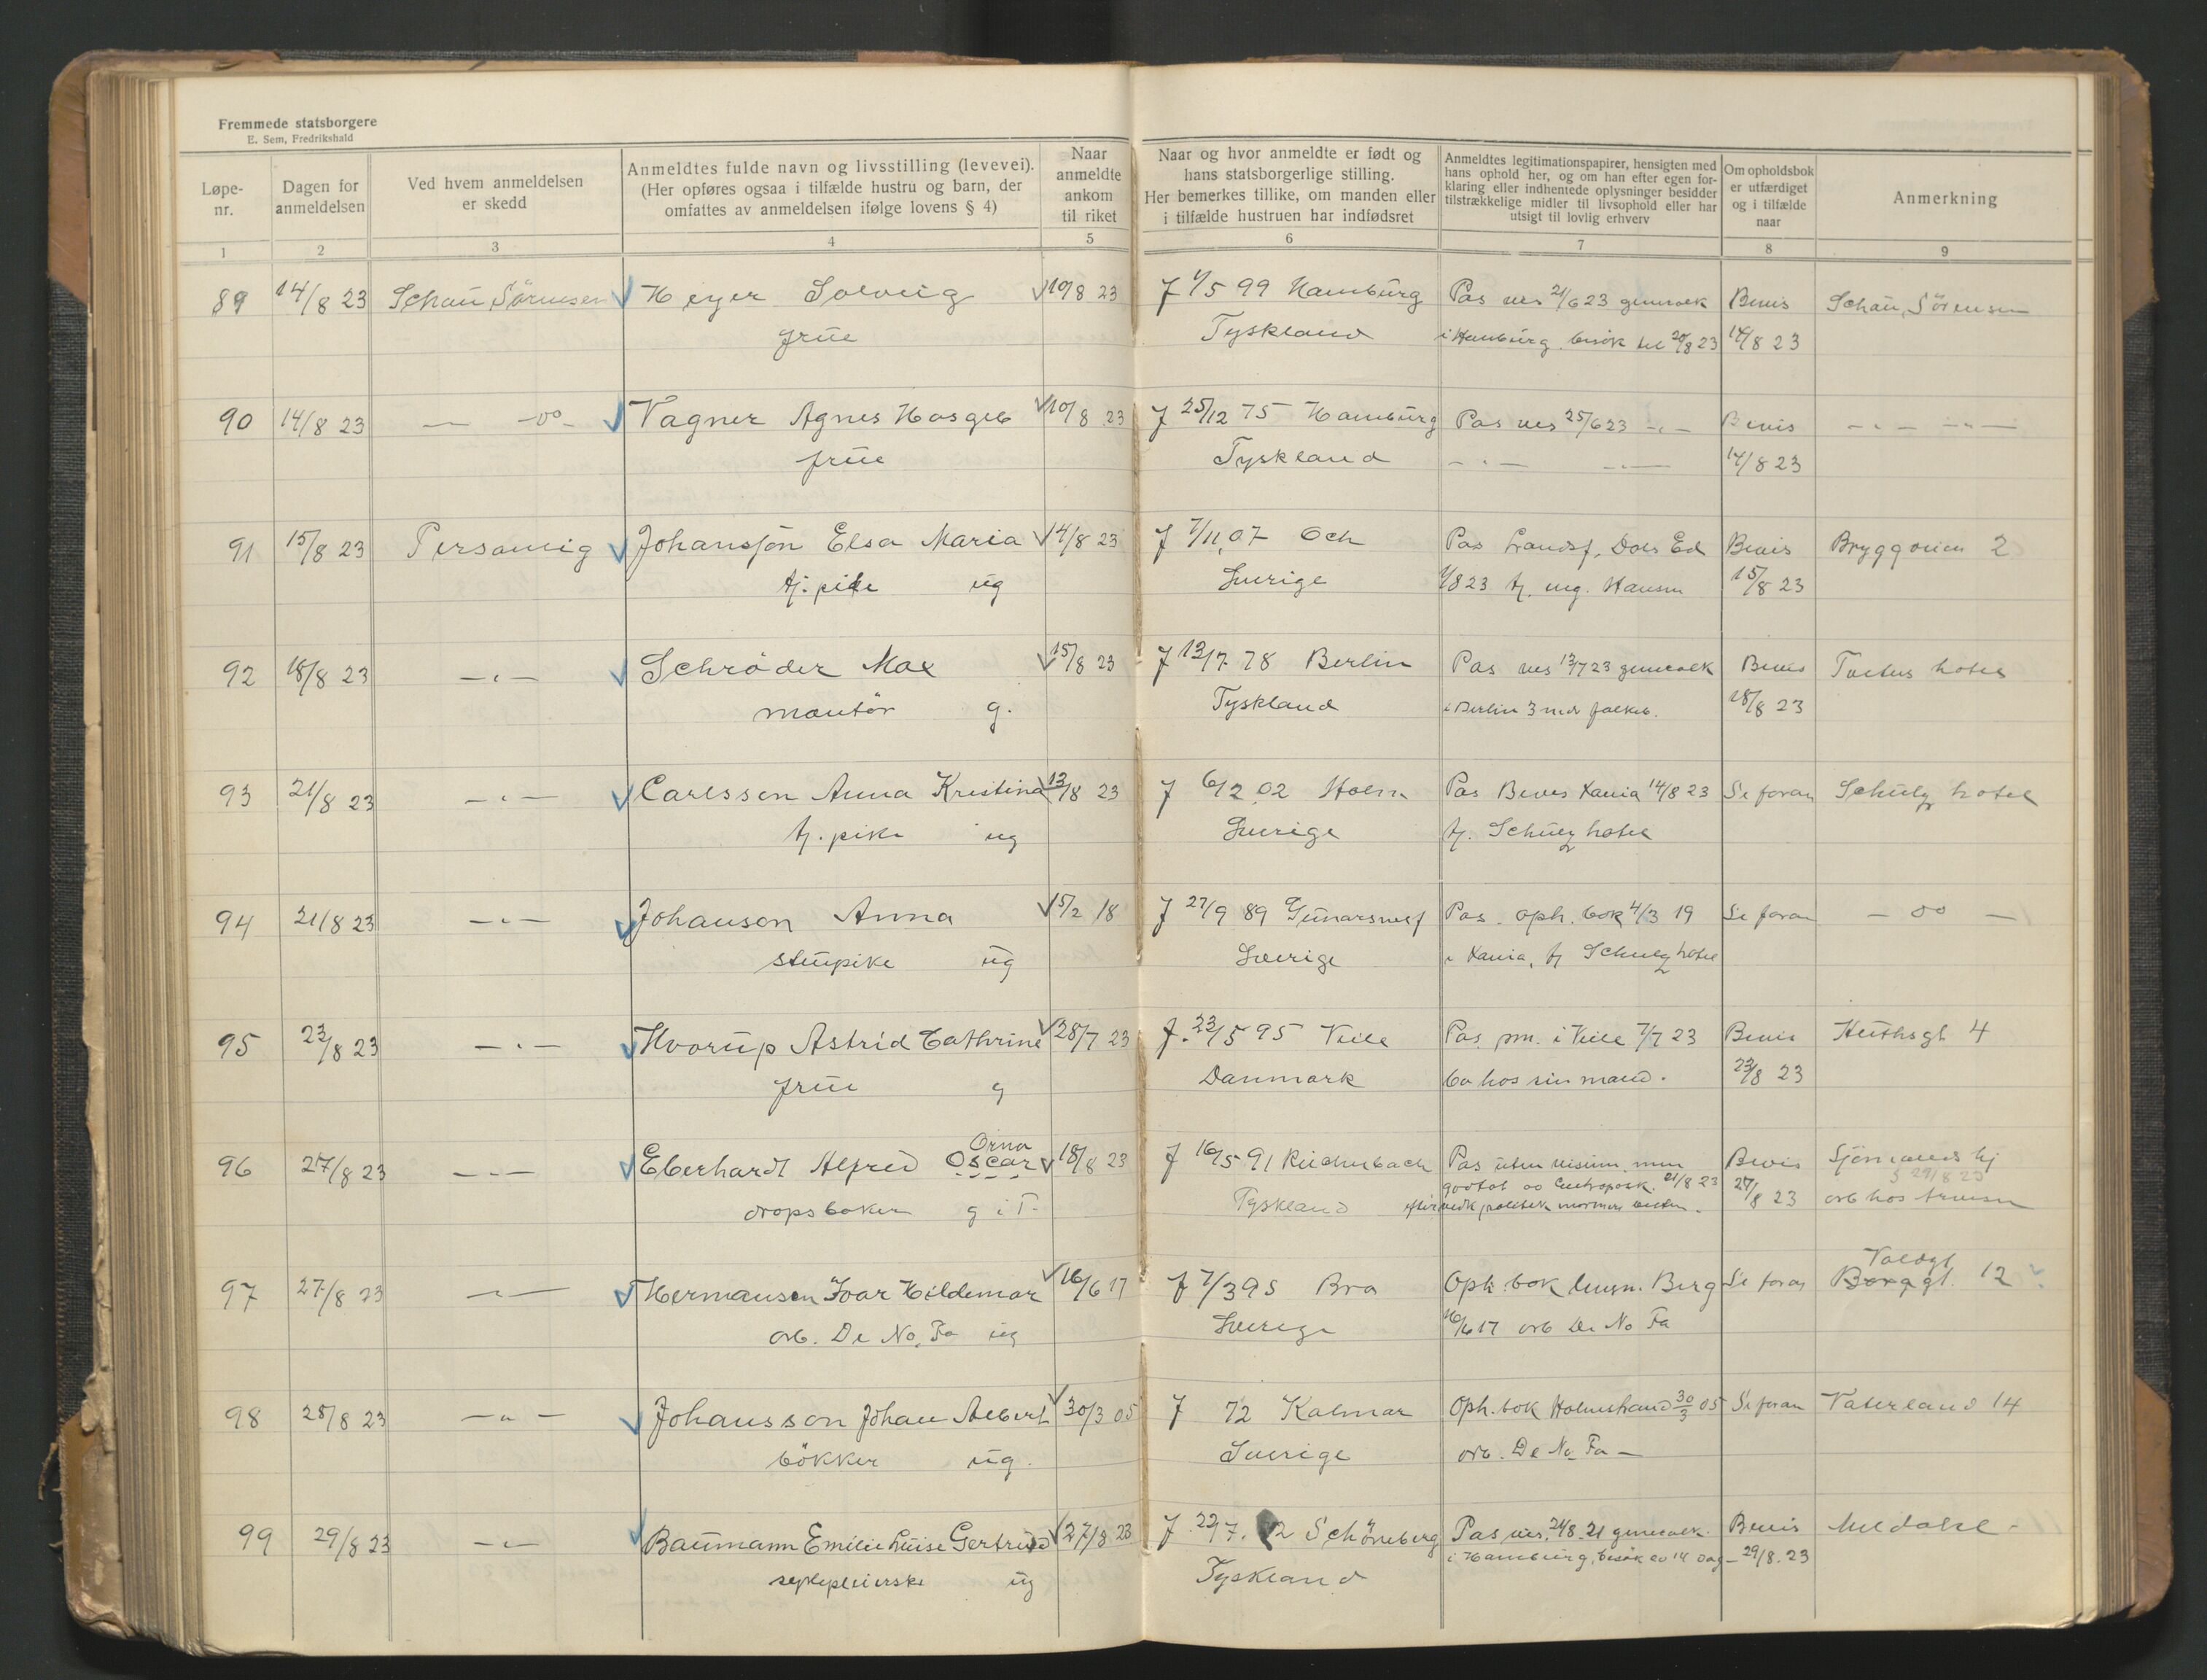 Fremmede statsborgere
E. Sem, Fredrikshald
Løpe-nr.
Dagen for anmeldelsen
Ved hvem anmeldelsen er skedd
Anmeldtes fulde navn og livsstilling (levevei).
(Her opføres ogsaa i tilfælde hustru og barn, der
omfattes av anmeldelsen ifølge lovens § 4)
Naar anmeldte ankom til riket
Naar og hvor anmeldte er født og
hans statsborgerlige stilling.
Her bemerkes tillike, om manden eller
i tilfælde hustruen har indfødsret
Anmeldtes legitimationspapirer, hensigten med
hans ophold her, og om han efter egen for-
klaring eller indhentede oplysninger besidder
tilstrækkelige midler til livsophold eller har
utsigt til lovlig erhverv
Om opholdsbok
er utfærdiget
og i tilfælde
naar
Anmerkning
1 2 3 4 5 6 7 8 9
89 14/8 23 Schau Sörensen Heyer Solveig 10/8 23 f 1/5 99 Hamburg Pas 21/6 23 Bevis Schau, Sörensen
frue Tyskland i Hamburg besök til 20/8 23 14/8 23
90 14/8 23 — -oo- Vagner Agnes 10/8 23 f 25/12 75 Hamburg Pas 25/6 23 -"- Bevis -"- -"-
frue Tyskland -"- -"- 14/8 23
91 15/8 23 Personlig Johansson Elsa Maria 14/8 23 f 7/11 07 Och Pas Landsf. Dals Ed Bevis Bryggerien 2
tj. pike ug Sverige 1/8 23 tj. Hansen 15/8 23
92 18/8 23 -"- Schröder Max 15/8 23 f 13/7 78 Berlin Pas 13/7 23 Bevis hotel
montör g. Tyskland i Berlin 3 18/8 23
93 21/8 23 -"- Carlsson Anna Kristina 13/8 23 f 6/2 02 Holm Pas Beves Xania 14/8 23 Se foran Schulz hotel
tj. pike ug Sverige tj. Schulz hotel
94 21/8 23 -"- Johanson Anna 15/2 18 f 27/9 89 Pas. oph. bok 4/3 19 Se foran - oo -
stupike ug Sverige i Xania, tj Schulz hotel
95 23/8 23 -"- Hvorup Astrid Cathrine 28/7 23 f. 23/5 95 Veile Pas pm. i Veile 7/7 23 Bevis 4
frue g Danmark bo hos sin mand. 23/8 23
Orno
96 27/8 23 -"- Eberhardt Alfred Oscar 18/8 23 f 16/5 91 Reichenbach Pas uten visum men Bevis Sjömands hj
godtat av 21/8 23 § 29/8 23
dropskoker g i T. Tyskland 27/8 23 arb hos Arnesen
Valdgt
97 27/8 23 -"- Hermansen Ivar Hildemar 16/6 17 f 7/3 95 Bro Oph. bok lensm. Berg Se foran Borggt. 12
arb. De No Fa ug Sverige 16/6 17 arb De No Fa
98 28/8 23 -"- Johansson Johan Albert 30/3 05 f 72 Kalmar Oph. bok Holmestrand 30/3 05 Se foran Vaterland 14
bökker ug. Sverige arb. De No Fa —
99 29/8 23 -"- Baumann Emilie Luise Gertrud 27/8 23 f 22/7. 2 Schöneberg Pas 24/8 21 Bevis
sykepleierske ug Tyskland i Hamburg, besök av 14 dag - 29/8. 23